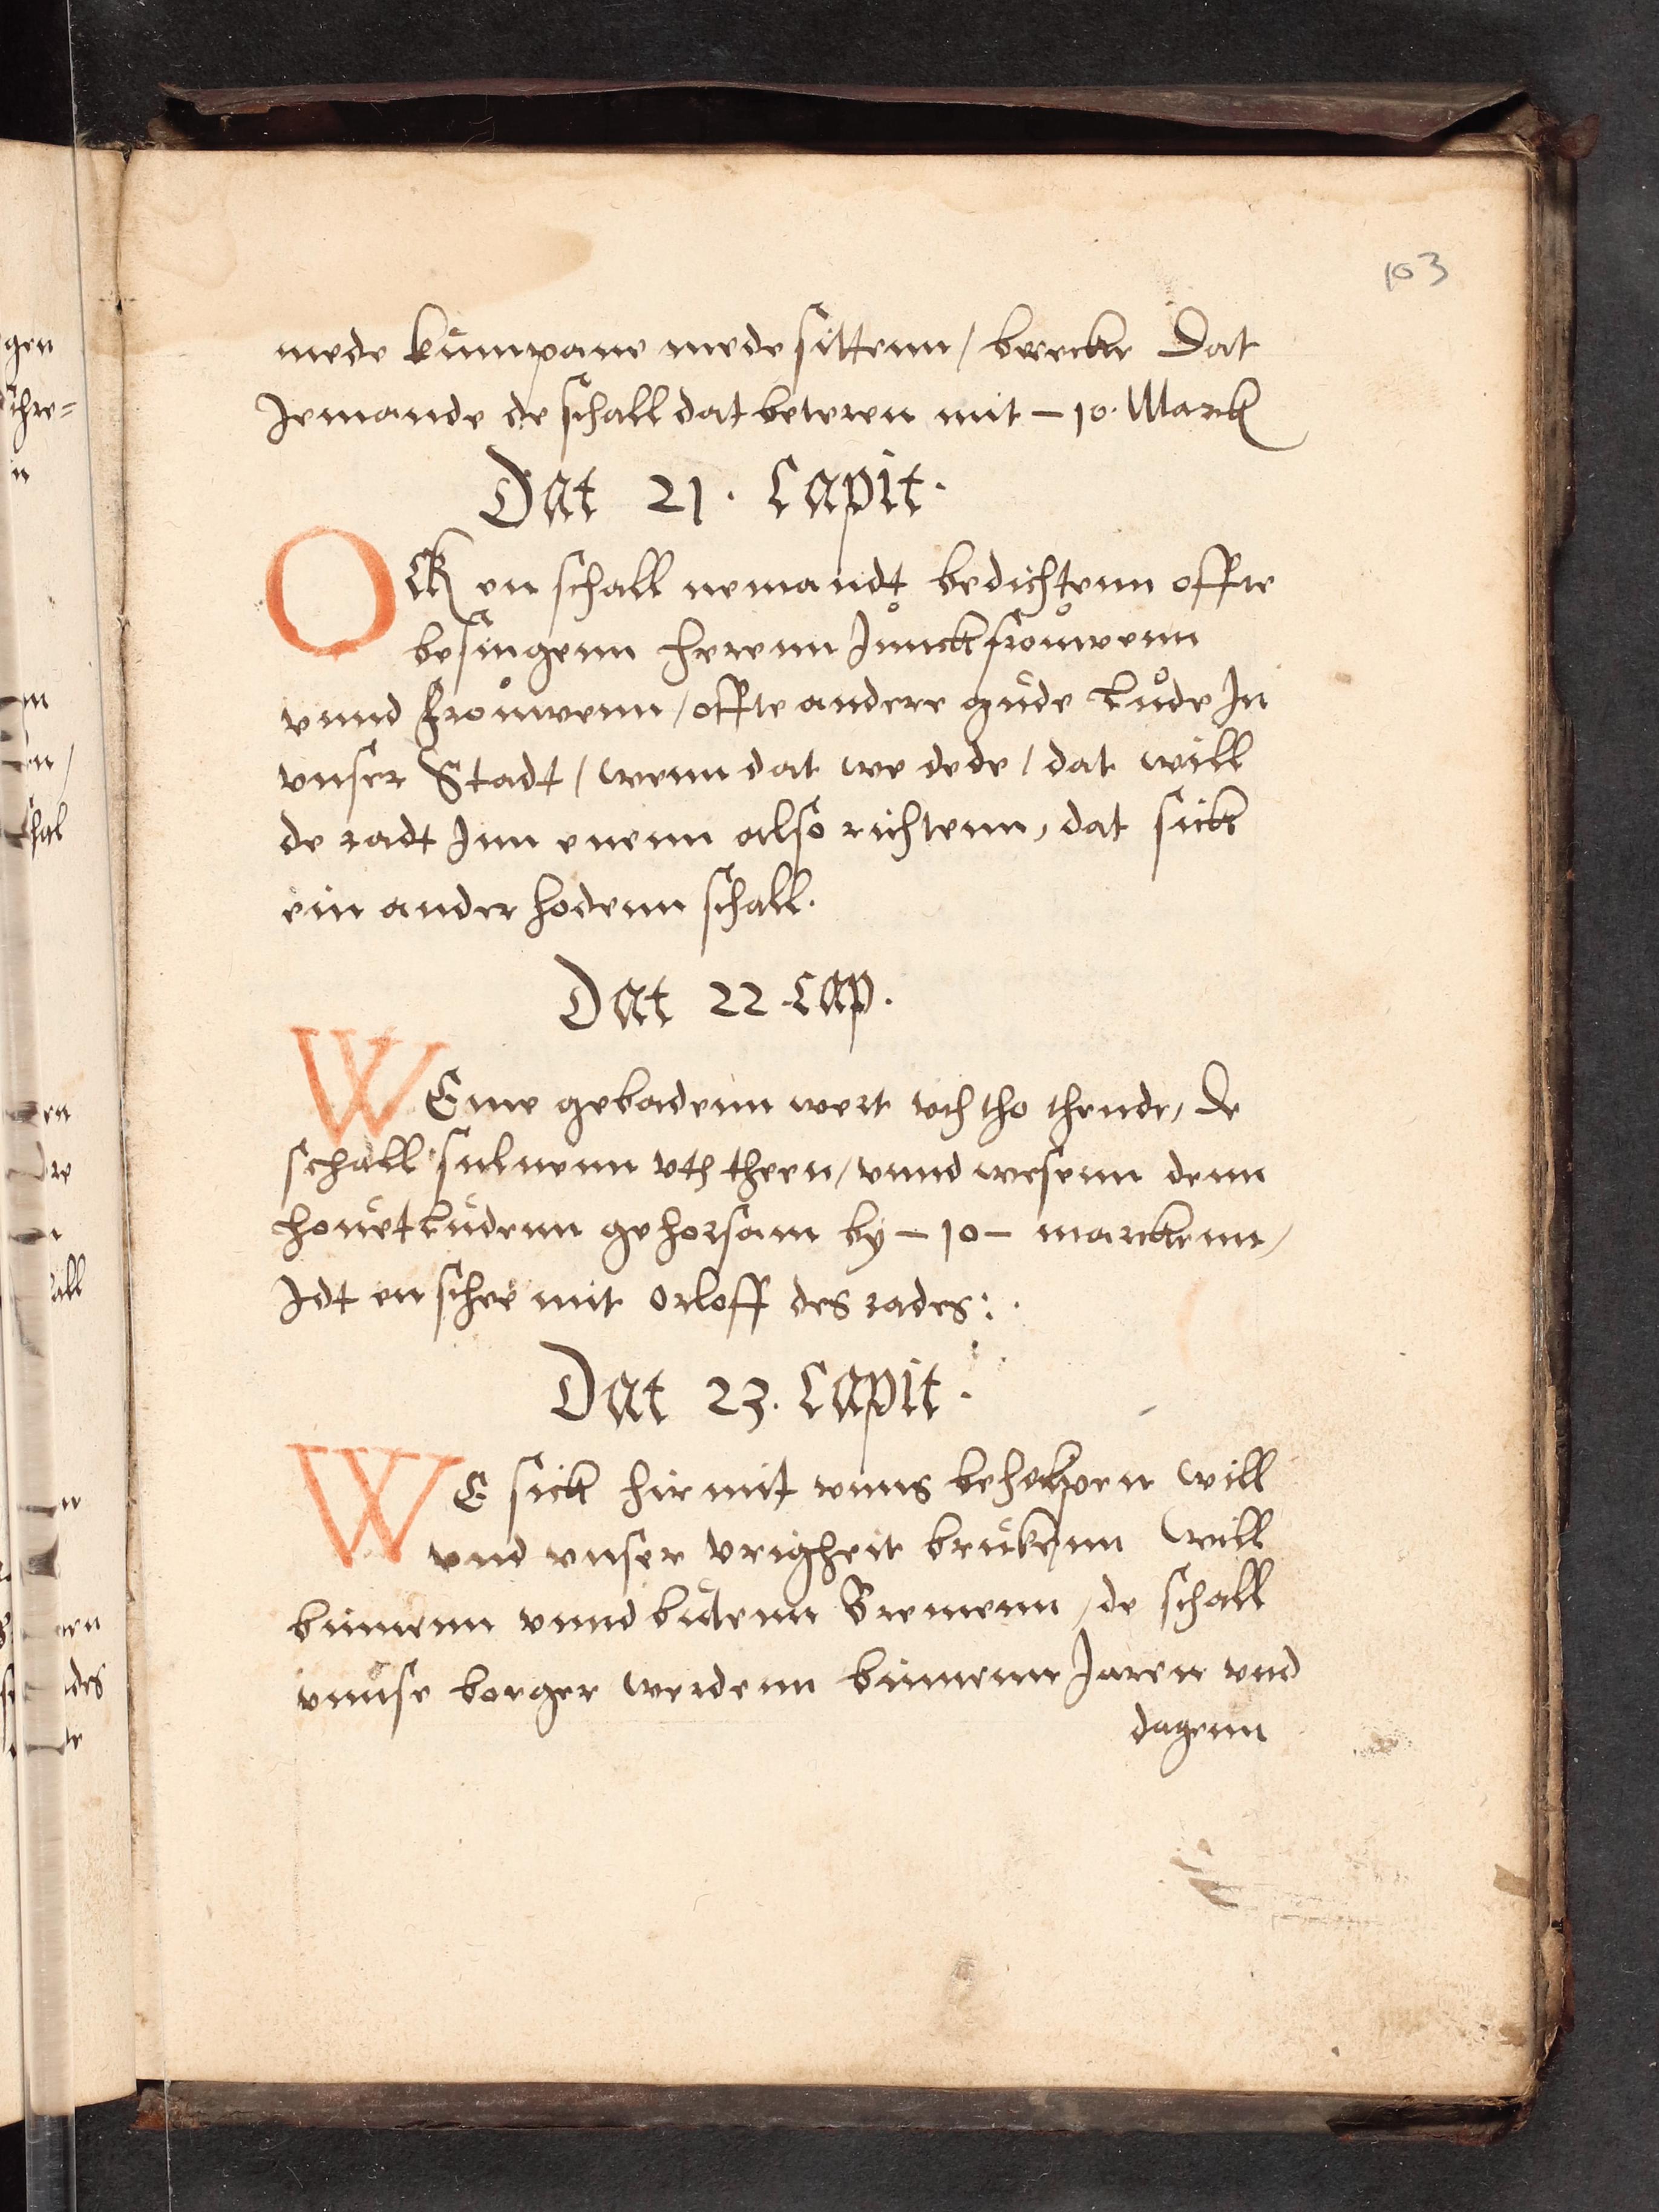 103
mede kumpane mede sittenn / brecke dat
Jemande de schall dat beteren mit – 10. Marck
Dat 21. Capit.
Ock en schall nemandt bedichtenn offte
besingenn herenn Junckfrouwenn
vnnd frouwenn / offte andere gude Lude In
vnser Stadt / wenn dat we dede / dat will
de radt Inn enenn also richtenn, dat sick
ein ander hodenn schall.
Dat 22 Cap.
WEme gebadenn wert vth tho thende, De
schall suluenn vth theen / vnnd wesenn denn
houetludenn gehorsam by – 10 – marckenn /
Idt en schee mit orloff des rades:.
Dat 23. Capit.
WE sick hir mit vnns behelpen will
vnd vnser vrigheit brukenn will
binnenn vnnd butenn Bremenn / de schall
vnnse borger werdenn binnenn Jaren vnd
dagenn